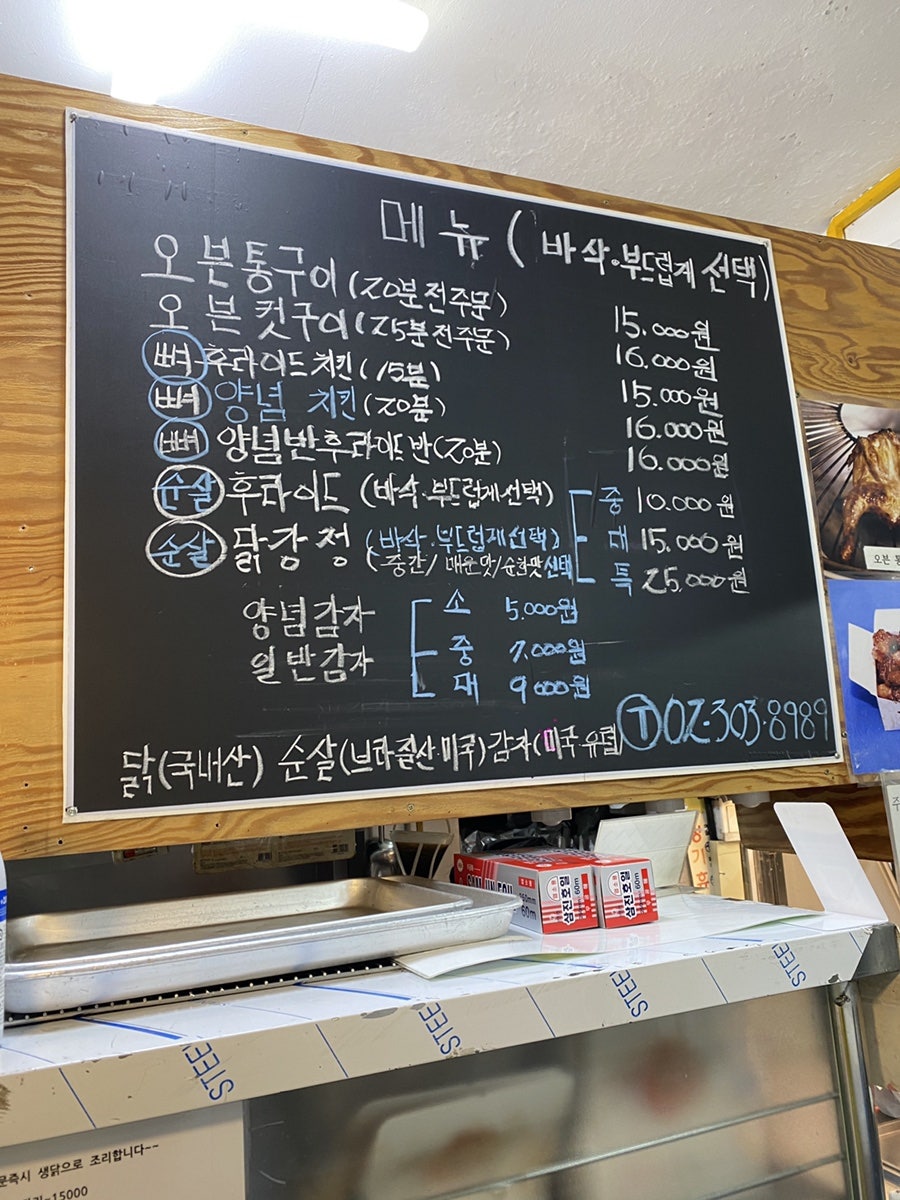 메뉴 (바삭·부드럽게 선택)
오븐통구이 (20분전주문) 15.000원
오븐컷구이 (25분전주문) 16.000원
뼈 후라이드치킨 (15분) 15.000원
뼈 양념 치킨 (20분) 16.000원
뼈 양념반후라이드반 (20분) 16.000원
순살 후라이드 (바삭·부드럽게선택) 중 10.000원
순살 닭강정 (바삭·부드럽게선택) 대 15.000원
(중간/매운맛/순한맛선택 특 25.000원
양념감자 소 5.000원
일반감자 중 7.000원
대 9000원
T 02·303·8989
닭(국내산) 순살(브라질산·미국) 감자(미국·유럽)
오븐 통
삼진호일 60m
삼진호일 60m
60m
STEEL
STEEL
STEEL
STEEL
문즉시 생닭으로 조리합니다~~
-15000